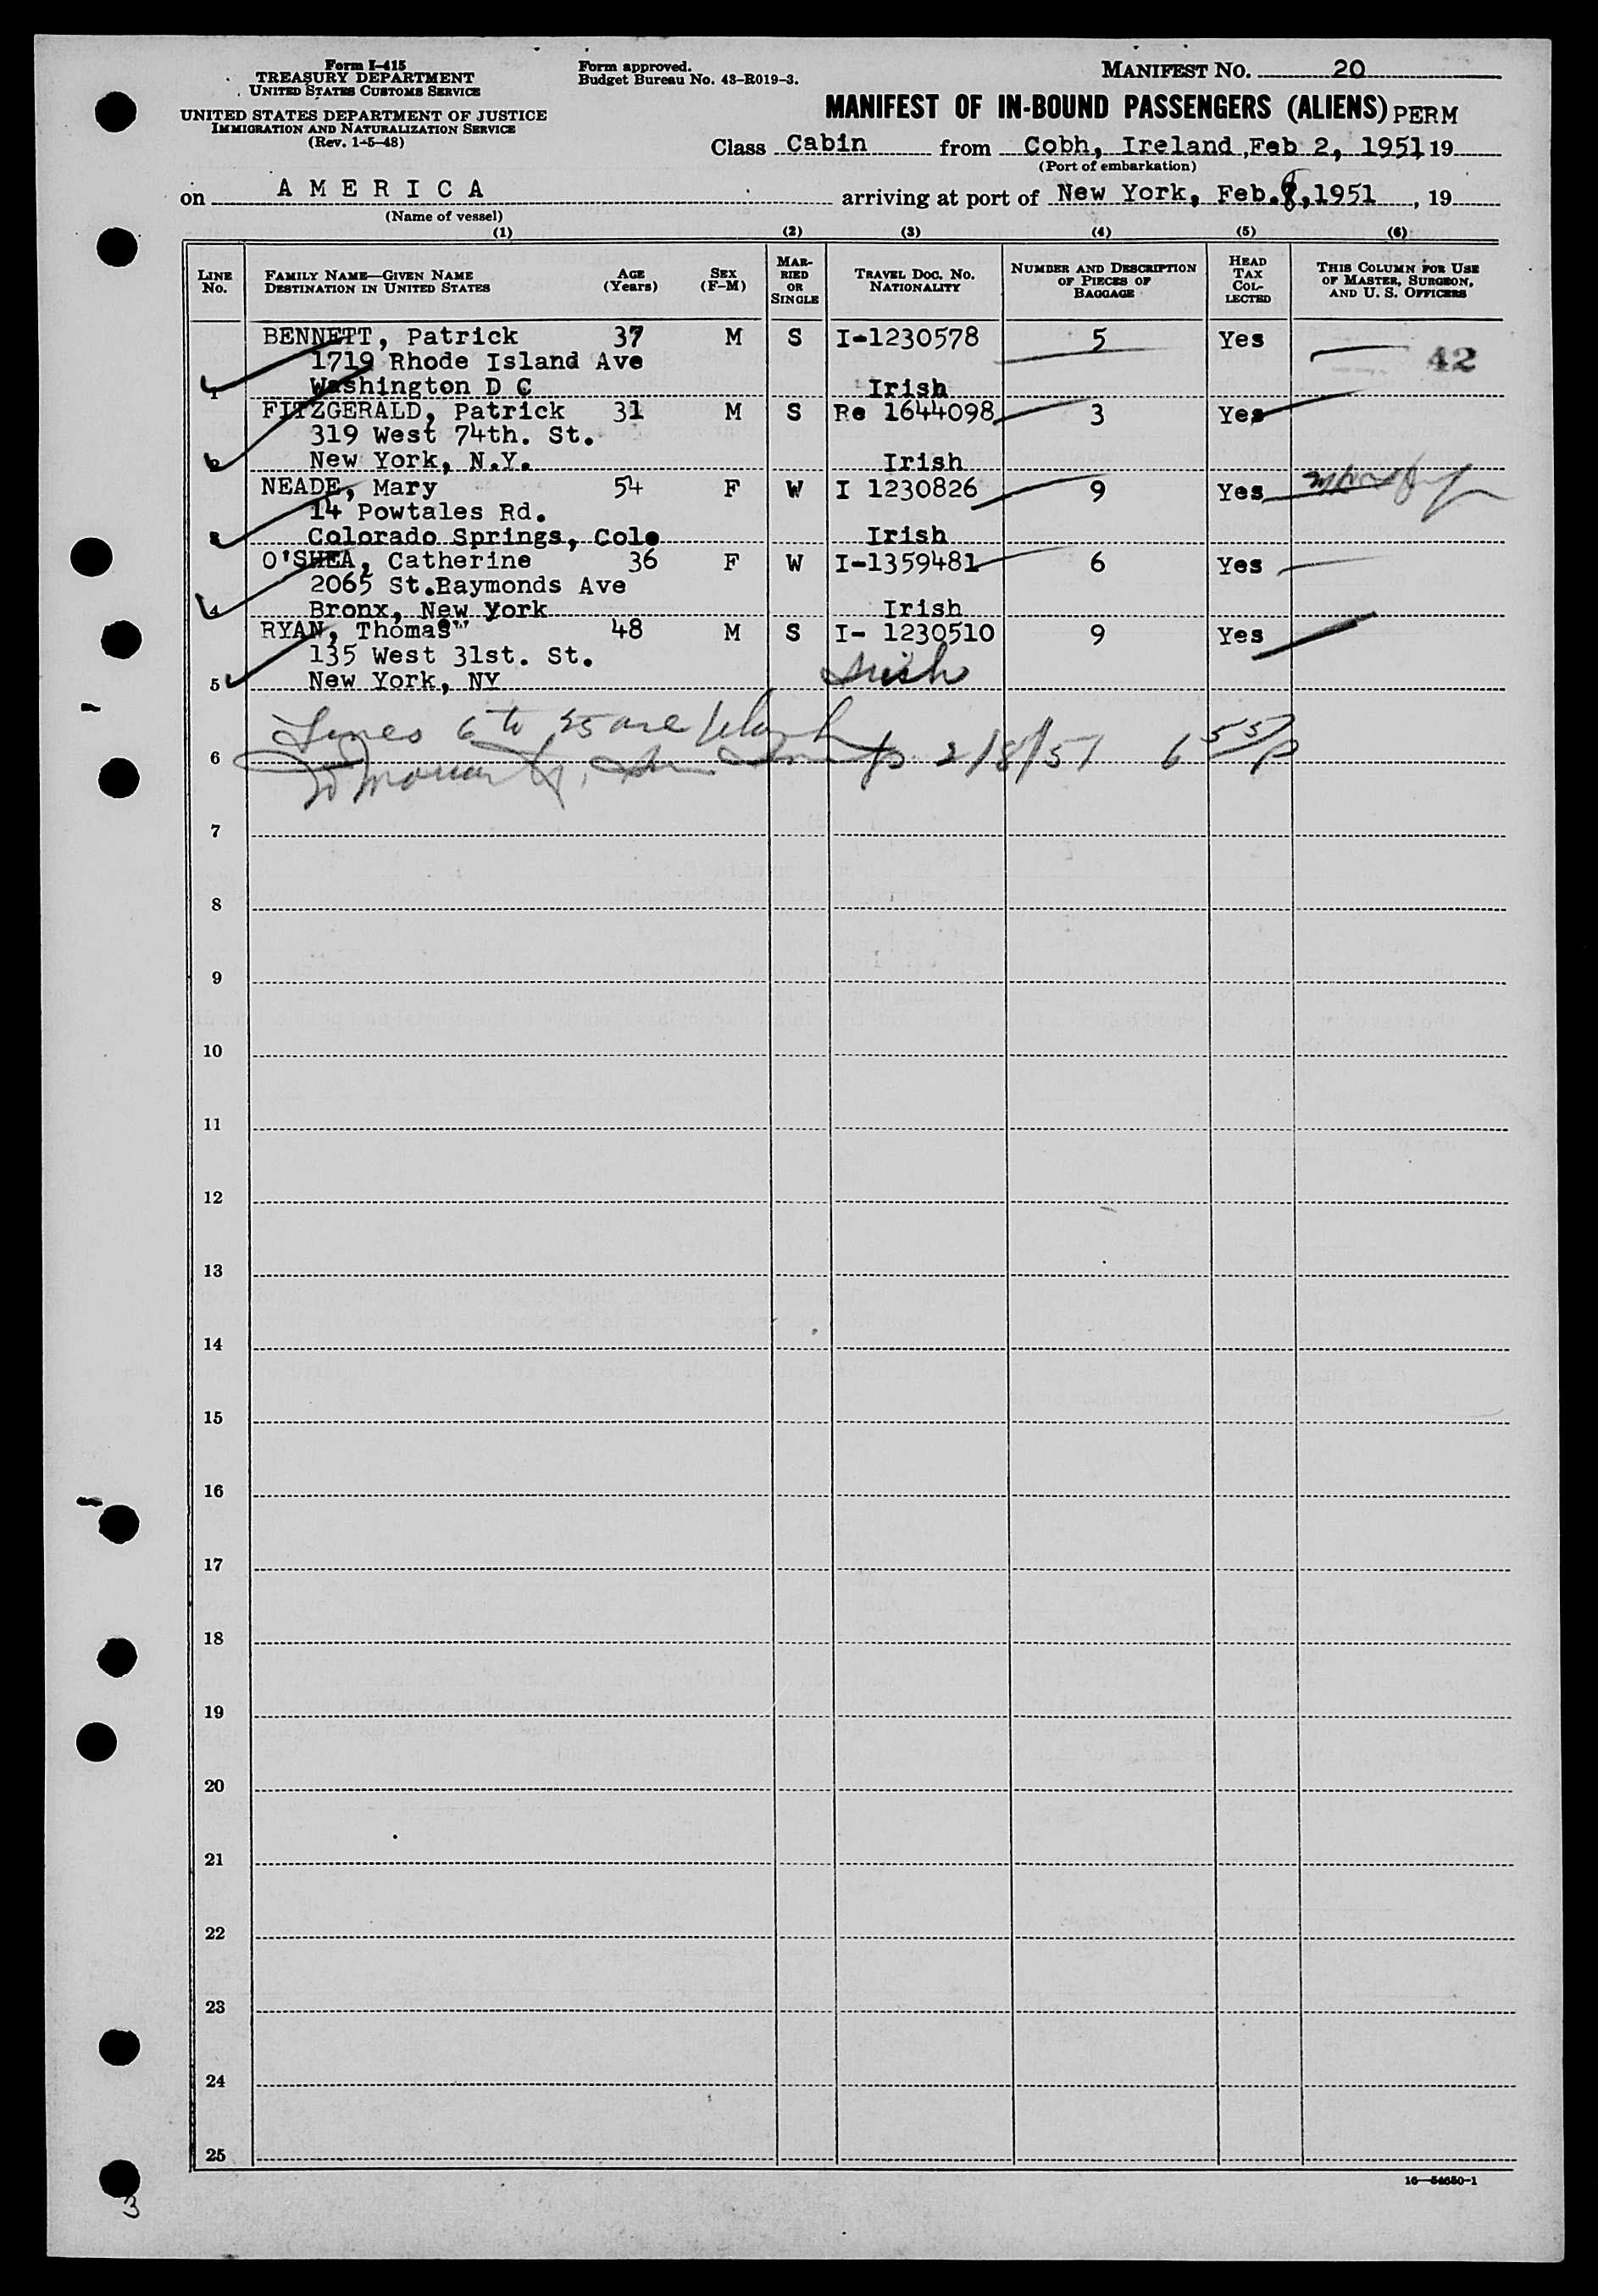 Form I-415
TREASURY DEPARTMENT
UNITED STATES CUSTOMS SERVICE
UNITED STATES DEPARTMENT OF JUSTICE
IMMIGRATION AND NATURALIZATION SERVICE
(Rev. 1-5-48)
Form approved.
Budget Bureau No. 43-R019-3.
MANIFEST NO. 20
MANIFEST OF IN-BOUND PASSENGERS (ALIENS) PERM
Class Cabin from Cobh, Ireland, Feb 2, 1951 19
(Port of embarkation)
on A M E R I C A arriving at port of New York, Feb. 8, 1951, 19
(Name of vessel)
(1) (2) (3) (4) (5) (6)
LINE No. FAMILY NAME—GIVEN NAME DESTINATION IN UNITED STATES AGE (Years) SEX (F-M) MARRIED OR SINGLE TRAVEL DOC. NO. NATIONALITY NUMBER AND DESCRIPTION OF PIECES OF BAGGAGE HEAD TAX COLLECTED THIS COLUMN FOR USE OF MASTER, SURGEON, AND U. S. OFFICERS
BENNETT, Patrick 37 M S I-1230578 5 Yes 42
1719 Rhode Island Ave
1 Washington D C Irish
FITZGERALD, Patrick 31 M S Re 1644098 3 Yes
319 West 74th. St.
2 New York, N.Y. Irish
NEADE, Mary 54 F W I 1230826 9 Yes
14 Powtales Rd.
3 Colorado Springs, Colo Irish
O'SHEA, Catherine 36 F W I-1359481 6 Yes
2065 St.Raymonds Ave
4 Bronx, New York Irish
RYAN, Thomas 48 M S I- 1230510 9 Yes
135 West 31st. St.
5 New York, NY Irish
Lines 6 to 25 are blank
6 2/8/51 6 55/p
7
8
9
10
11
12
13
14
15
16
17
18
19
20
21
22
23
24
25
16—54650-1
3